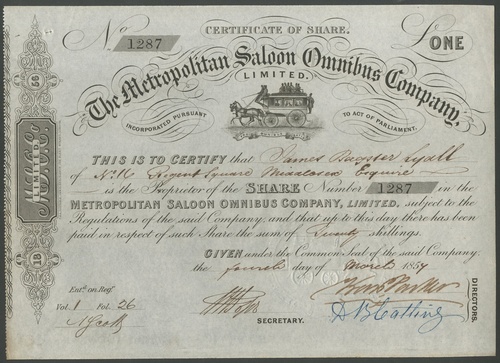 CERTIFICATE OF SHARE.
No 1287
£ONE
The Metropolitan Saloon Omnibus Company,
LIMITED.
INCORPORATED PURSUANT TO ACT OF PARLIAMENT.
M.S.O.C.
LIMITED
THIS IS TO CERTIFY that James Lyall
of No 16 Regent Square Middlesex Esquire
is the Proprietor of the SHARE Number 1287 in the
METROPOLITAN SALOON OMNIBUS COMPANY, LIMITED, subject to the
Regulations of the said Company; and that up to this day there has been
paid in respect of such Share the sum of Twenty shillings.
GIVEN under the Common Seal of the said Company,
the fourth day of March 1857
Entd. on Regr.
Vol. 1 Fol. 26
SECRETARY.
DIRECTORS.